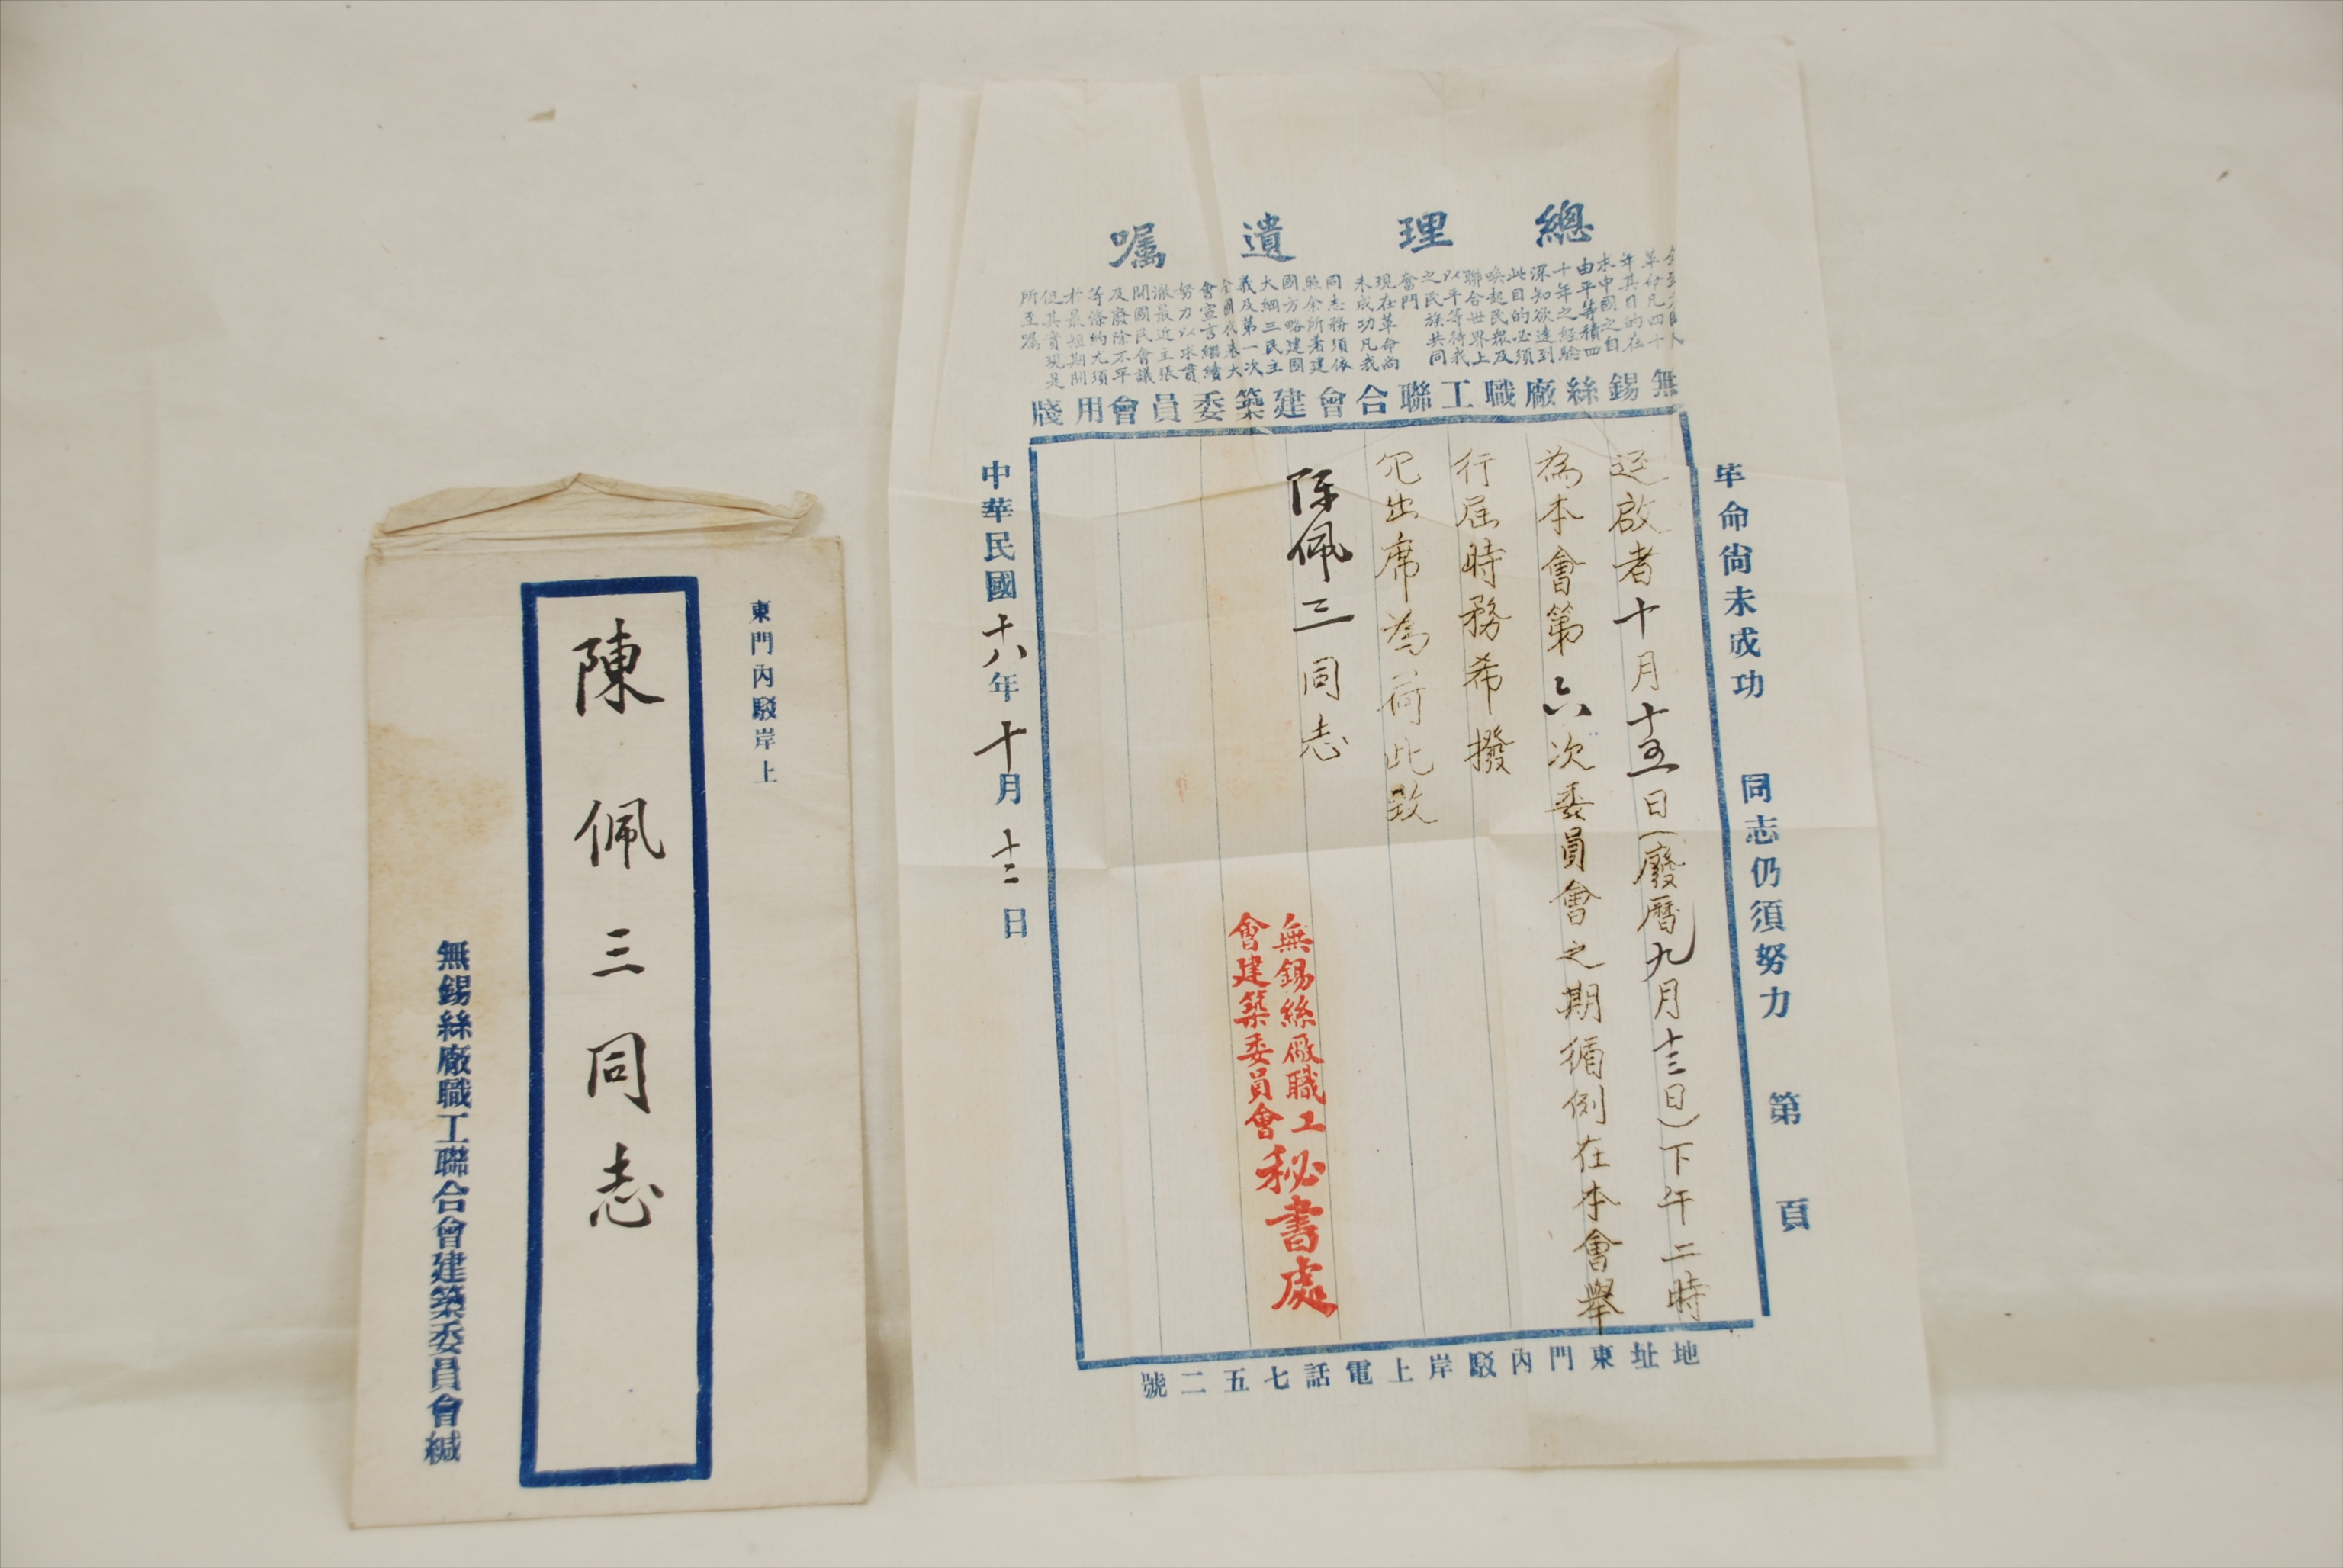 東門內駁岸上
陳佩三同志
無錫絲廠職工聯合會建築委員會緘
總理遺囑
革命凡四十
年其目的在
求中國之自
由平等積四
十年之經驗
深知欲達到
此目的必須
喚起民眾及
聯合世界上
以平等待我
之民族共同
奮鬥
現在革命尚
未成功凡我
同志務須依
照余所著建
國方略建國
大綱三民主
義及第一次
全國代表大
會宣言繼續
努力以求貫
澈最近主張
開國民會議
及廢除不平
等條約尤須
於最短期間
促其實現是
所至囑
無錫絲廠職工聯合會建築委員會用牋
革命尚未成功 同志仍須努力 第 頁
逕啟者十月十五日(廢曆九月十三日)下午二時
為本會第六次委員會之期循例在本會舉
行屆時務希撥
冗出席為荷此致
陈佩三同志
無錫絲廠職工
會建築委員會
秘書處
中華民國十八年十月十二日
地址東門內駁岸上電話七五二號